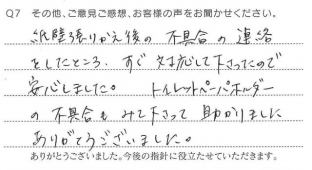 Q7 その他、ご意見ご感想、お客様の声をお聞かせください。
紙障張りかえ後の不具合の連絡
をしたところ、すぐ対応して下さったので
安心しました。トイレットペーパーホルダー
の不具合もみて下さって助かりました
ありがとうございました。
ありがとうございました。今後の指針に役立たせていただきます。